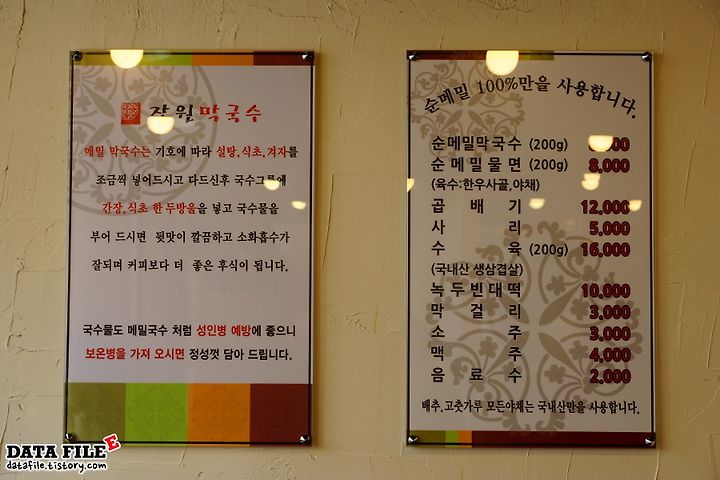 장원막국수
메밀 막국수는 기호에 따라 설탕,식초,겨자를
조금씩 넣어드시고 다드신후 국수그릇에
간장,식초 한 두방울을 넣고 국수물을
부어 드시면 뒷맛이 깔끔하고 소화흡수가
잘되며 커피보다 더 좋은 후식이 됩니다.
국수물도 메밀국수 처럼 성인병 예방에 좋으니
보온병을 가져 오시면 정성껏 담아 드립니다.
순메밀 100%만을 사용합니다.
순메밀막국수 (200g)
순메밀물면 (200g) 8,000
(육수:한우사골,야채)
곱배기 12,000
사리 5,000
수육 (200g) 16,000
(국내산 생삼겹살)
녹두빈대떡 10,000
막걸리 3,000
소주 3,000
맥주 4,000
음료수 2,000
배추,고춧가루 모든야채는 국내산만을 사용합니다.
DATA FILE E
datafile.tistory.com